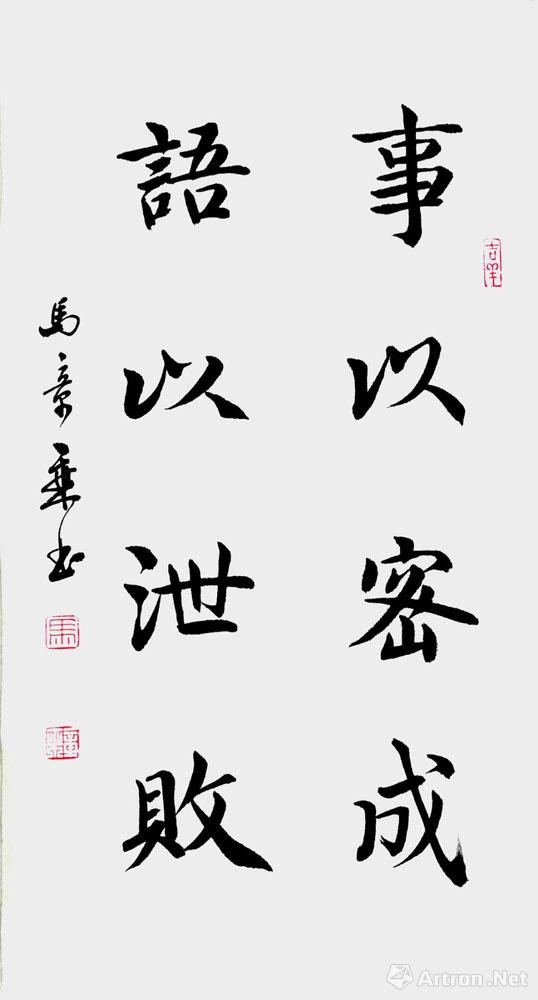 事以密成
語以泄敗
馬章乘书
Artron.Net